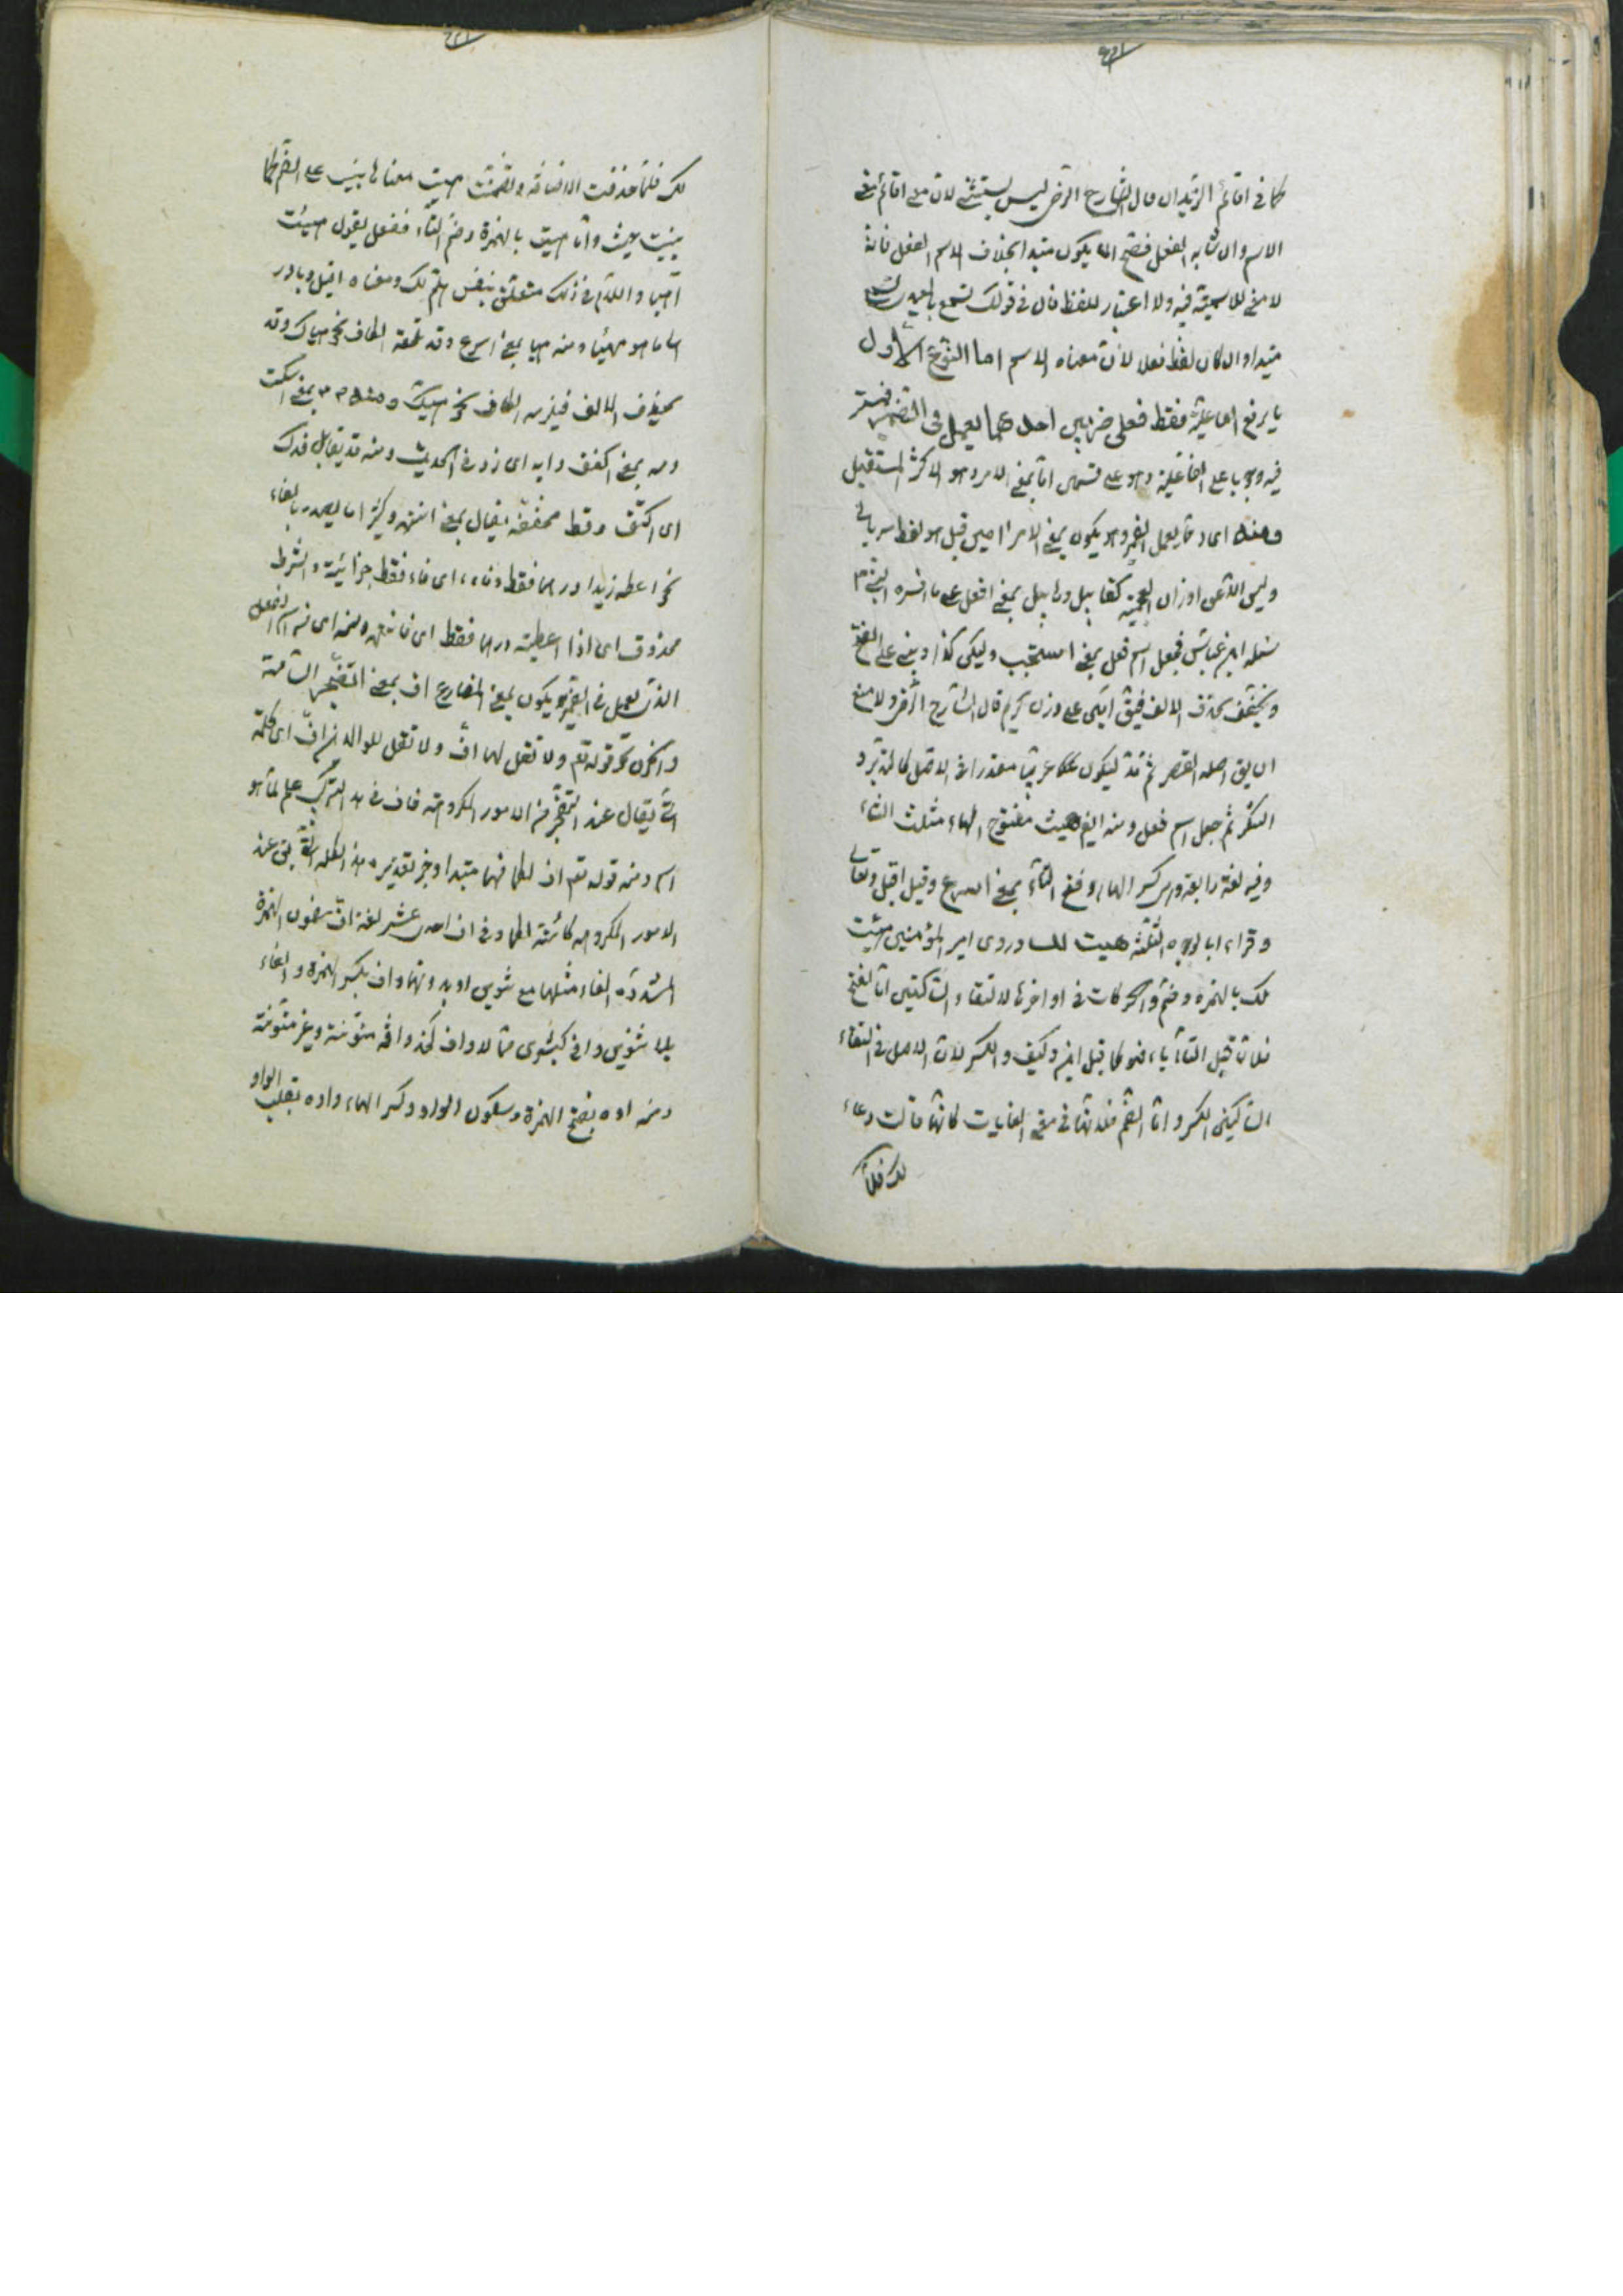 كما في اقائم الزيدان قال الشارح الرضي ليس بشيئ لان معنى اقائم معنى
الاسم وان شابه الفعل فصح ان يكون مبتدا بخلاف اسم الفعل فانه
لا معنى للاسمية فيه ولا اعتبار للفظ فان في قولك تسمع بالمعيدي
مبتدا وان كان لفظه فعلا لان معناه الاسم اما النوع الاول
ما يرفع الفاعلية فقط فعلى ضربين احدهما يعمل في الضمير فيستتر
فيه وجوبا على الفاعلية وهو على قسمين اما بمعنى الامر وهو الاكثر المستقبل
ومنه اى مما يعمل الضمير وهو يكون بمعنى الامر امين قيل هو لفظ سريانى
وليس الا من اوزان العجمية كقابيل وهابيل بمعنى افعل على ما فسره النبى ص
سئله ابن عباس فجعل اسم فعل بمعنى استجب وليكن كذا وبنى على الفتح
ويخفف بحذف الالف فيق امين على وزن كريم قال الشارح الرضي ولا منع
ان يق اصله القصر ثم مد ليكون عربيا مصدرا في الاصل كالنذير و
النكير ثم جعل اسم فعل ومنه ايض هيت مفتوح الهاء مثلث التاء
وفيه لغة رابعة وهي كسر الهاء وفتح التاء بمعنى اسرع وقيل اقبل وتعال
وقراء ابا لوجوه الثلثة هيت لك وروى امير المؤمنين هئت
لك بالهمزة وضم والحركات في اواخرها لالتقاء الساكنين اما الفتح
فلان قبل التاء ياء فهو كما قيل اين وكيف والكسر لان الاصل في التقاء
الساكنين الكسر واما الضم فلانها في معنى الغايات كانها قالت دعاء
لك فلما
لك فلما حذفت الاضافة وتضمنت هيت معناها بنيت على الضم كما
بنيت حيث واما هيت بالهمزة وضم التاء ففعل يقول هيئت
اهيا واللام في ذلك متعلق بنفس هلم لك ومعناه اقبل وبادر
الى ما هو مهيئا ومنه هيا بمعنى اسرع وقد تلحقه الكاف نحو هياك وقد
يحذف الالف فيلزمه الكاف نحو هيك ومنه صه بمعنى اسكت
ومه بمعنى اكفف وايه اى زد في الحديث ومنه قد يقال قدك
اى اكتف وقط مخففة يقال بمعنى انته وكثيرا ما يصدر بالفاء
نحو اعطه زيدا درهما فقط وفاءه اى فاء فقط جزائية والشرط
محذوف اى اذا اعطيته درهما فقط اى فانته ومنه اى من اسم الفعل
الذى يعمل في الضمير ويكون بمعنى المضارع اف بمعنى التضجر السامة
والحزن نحو قوله تع ولا تقل لهما اف ولا تقل للوالدين اف اى كلمة
التى يقال عند التضجر من الامور المكروهة فاف في هذ التركيب علم لما هو
اسم ومنه قوله تع اف لكما فهما مبتدا وخبر تقديره هذه الكلمة التى يق عند
الامور المكروهة كائنة لكما وفي اف احدى عشر لغة اف بضم الهمزة
المشددة الفاء مثلها مع تنوين او بدونها واف بكسر الهمزة والفاء
بلا تنوين وافى كبشرى ممالا واف كخذ وافة منونة وغير منونة
ومنه اوه بفتح الهمزة وسكون الواو وكسر الهاء واوه بقلب الواو